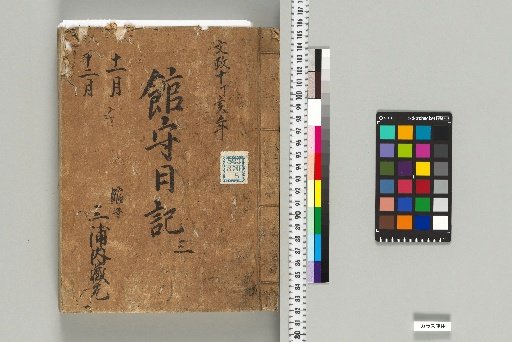 文政十丁亥年
館守日記
三
十一月
十二月
館守
三浦内蔵允